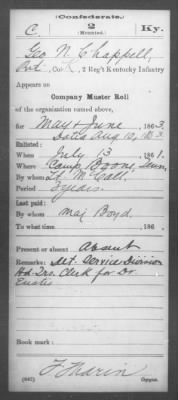 (Confederate.)
C. 2 Ky.
(Mounted.)
Geo N Chappell,
Pvt, Co. K, 2 Reg't Kentucky Infantry
Appears on
Company Muster Roll
of the organization named above,
for May & June, 1863.
dated Aug 12, 1863
Enlisted:
When July 13, 1861.
Where Camp Boone, Tenn,
By whom Lt McCall
Period 3 years.
Last paid:
By whom Maj Boyd.
To what time , 186 .
Present or absent Absent
Remarks: Det. Service Division
Hd Qrs. Clerk for Dr.
Book mark:
(642) Copyist.